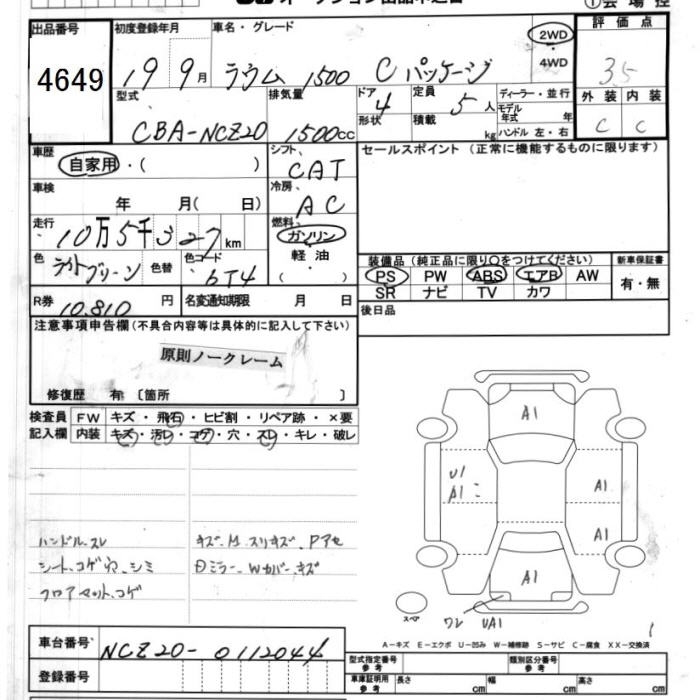 オークション出品申込書
①会場控
出品番号 4649
初度登録年月 19 9月
車名・グレード ラウム 1500 Cパッケージ
2WD
・
4WD
評価点 35
外装 C 内装 C
型式 CBA-NCZ20
排気量 1500cc
ドア 4
形状
定員 5人
積載 kg
ディーラー・並行
モデル年式 年
ハンドル 左・右
車歴 自家用・( )
シフト CAT
セールスポイント (正常に機能するものに限ります)
車検 年 月( 日)
冷房 AC
走行 10万5千327km
燃料 ガソリン
軽油
・( )
色 ライトグリーン
色替
色コード 6T4
装備品(純正品に限り○をつけてください)
新車保証書
PS PW ABS エアB AW
有・無
SR ナビ TV カワ
R券 10.810円
名変通知期限 月 日
後日品
注意事項申告欄(不具合内容等は具体的に記入して下さい)
原則ノークレーム
修復歴 有〔箇所 〕
検査員記入欄
FW キズ・飛石・ヒビ割・リペア跡・×要
内装 キズ・汚レ・コゲ・穴・スレ・キレ・破レ
ハンドル、スレ
シート、コゲ穴、シミ
フロアマット、コゲ
キズ、M、スリキズ、Pアセ
Dミラー、Wカバー、キズ
A1
U1
A1
A1
A1
A1
スペア
ワレ UA1
A-キズ E-エクボ U-凹み W-補修跡 S-サビ C-腐食 XX-交換済
車台番号 NCZ20-0112044
登録番号
型式指定番号 参考
類別区分番号 参考
車庫証明用 参考 長さ cm 幅 cm 高さ cm